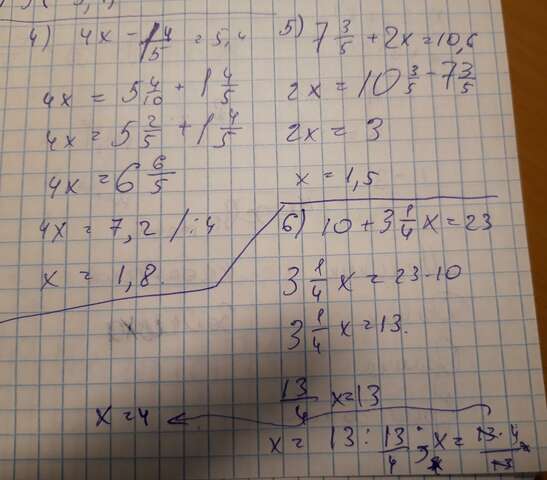 4) 4x - 1 4/5 = 5,4
4x = 5 4/10 + 1 4/5
4x = 5 2/5 + 1 4/5
4x = 6 6/5
4x = 7,2 /:4
x = 1,8.
5) 7 3/5 + 2x = 10,6
2x = 10 3/5 - 7 3/5
2x = 3
x = 1,5
6) 10 + 3 1/4 x = 23
3 1/4 x = 23-10
3 1/4 x = 13.
13/4 x = 13
x = 13 : 13/4 ; x = 13·4/13
x = 4